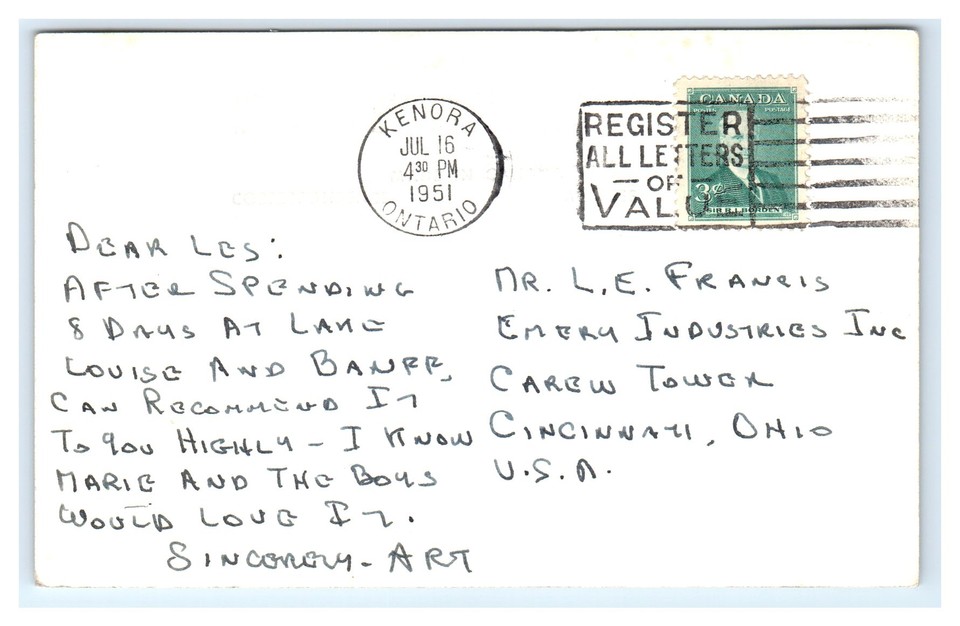 KENORA
JUL 16
4 30 PM
1951
ONTARIO
CANADA
POSTES POSTAGE
REGISTER
ALL LETTERS
— OF —
VALUE
3¢
SIR R.L. BORDEN
DEAR LES:
AFTER SPENDING
8 DAYS AT LAKE
LOUISE AND BANFF,
CAN RECOMMEND IT
TO YOU HIGHLY - I KNOW
MARIE AND THE BOYS
WOULD LOVE IT.
SINCERELY - ART
MR. L.E. FRANCIS
EMERY INDUSTRIES INC
CAREW TOWER
CINCINNATI, OHIO
U.S.A.